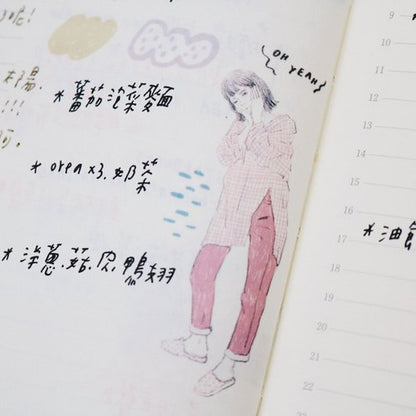 !
陽.
!!!
*蕃茄泡菜麵
* orea x3. 奶茶
*洋蔥.菇.肉.鴨翅
OH
YEAH
9
10
11
12
13
14
15
16
17
*油
18
19
20
21
22